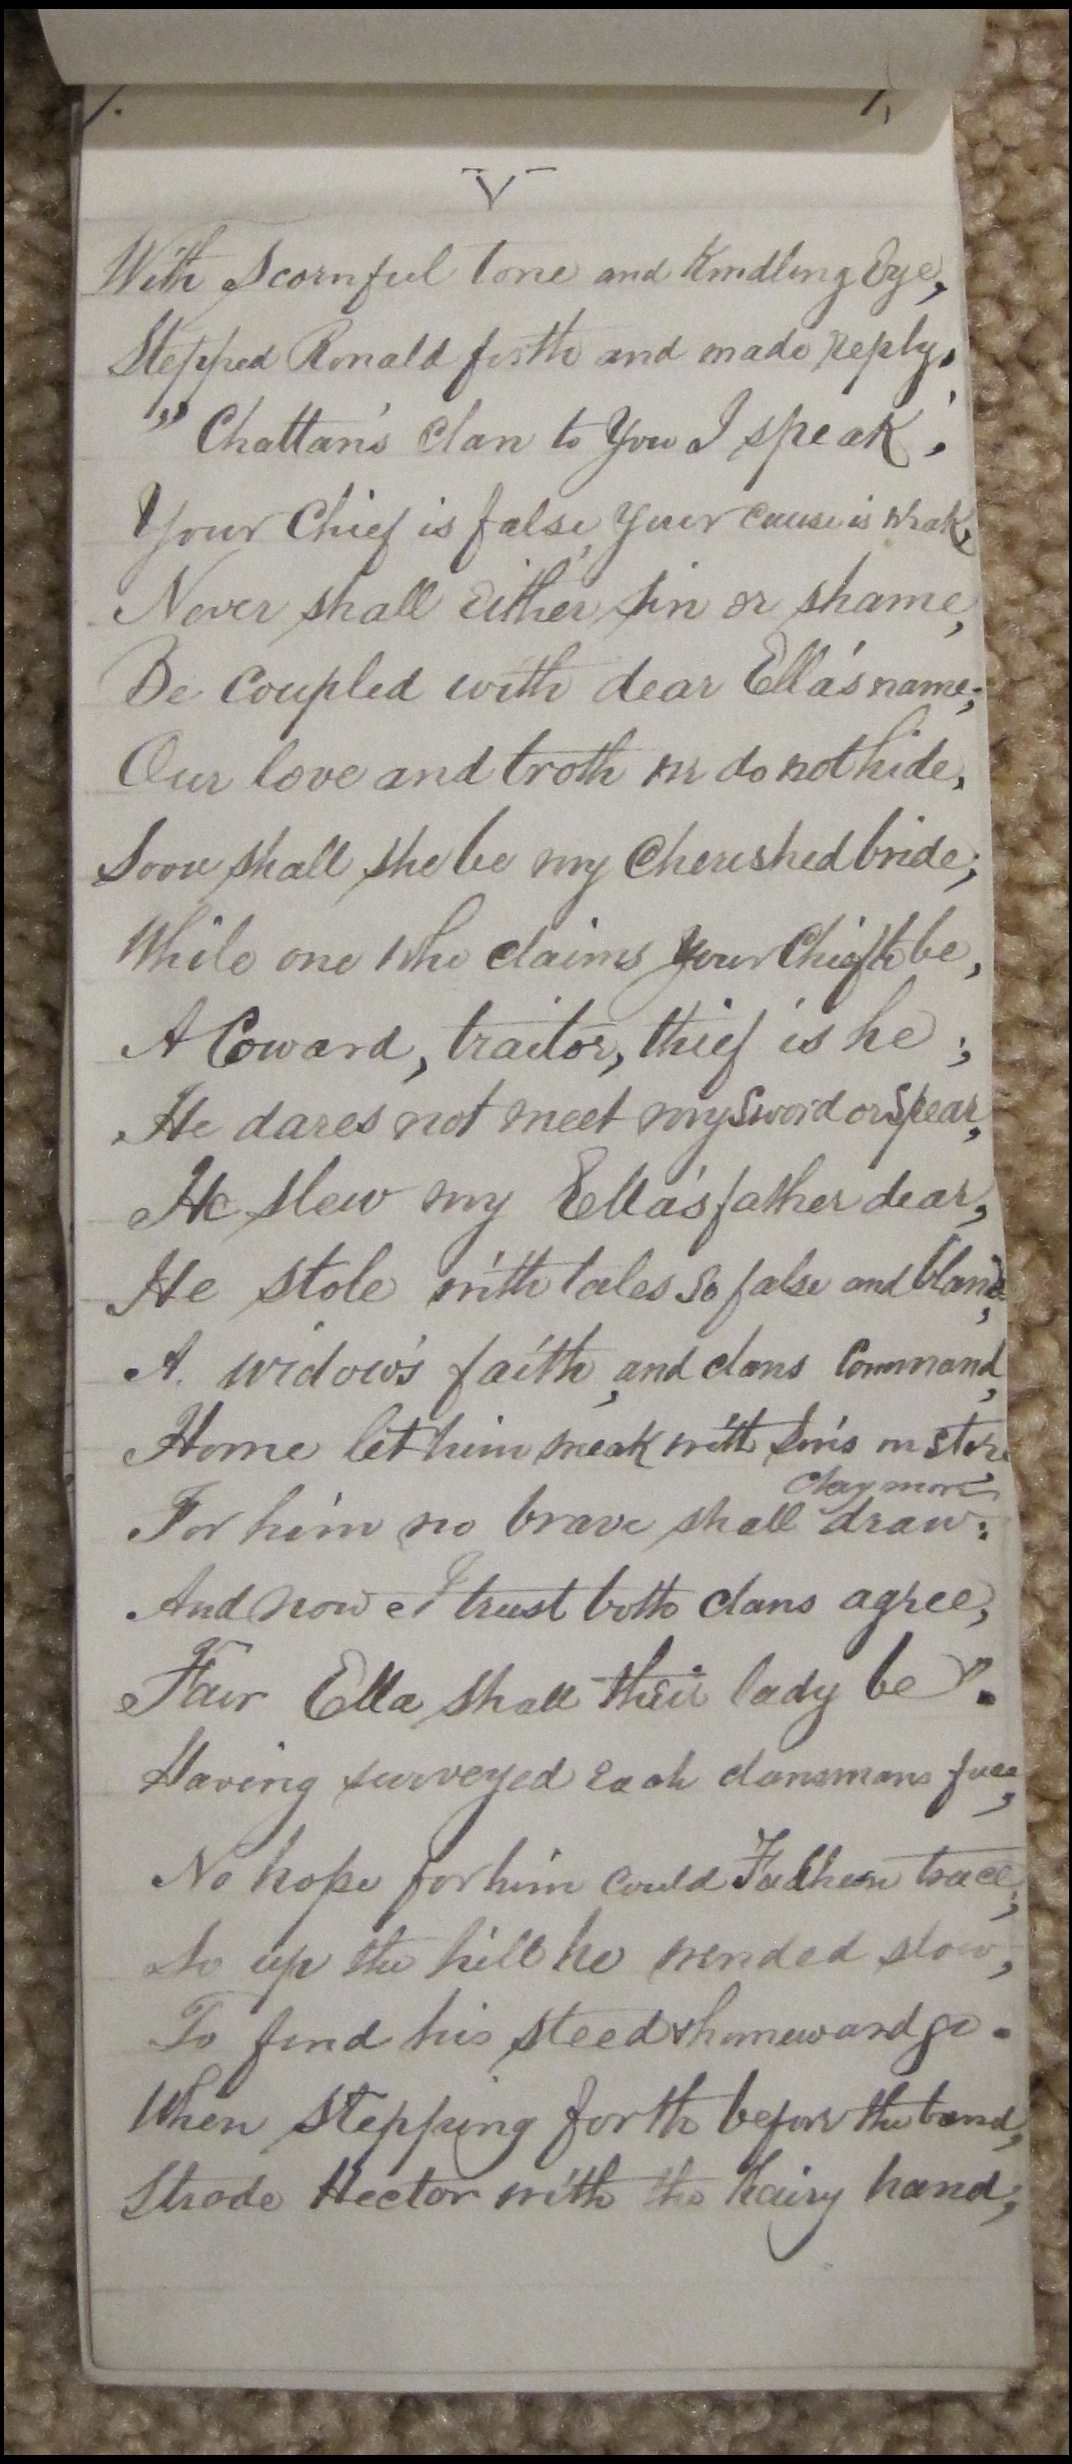 V
With Scornful tone and Kindling Eye,
Stepped Ronald forth and made reply.
" Chattan's clan to You I speak,
Your Chief is false, Your cause is weak,
Never shall either sin or shame,
Be coupled with dear Ella's name;
Our love and troth we do not hide,
Soon shall she be my Cherished bride;
While one who claims your Chief to be,
A Coward, traitor, thief is he;
He dares not meet my Sword or Spear,
He slew my Ella's father dear,
He stole with tales so false and bland,
A widow's faith, and clans Command,
Home let him sneak with sins in store
claymore
For him no brave shall draw:
And now I trust both clans agree,
Fair Ella shall their lady be".
Having surveyed each clansmans face,
No hope for him could trace;
So up the hill he wended slow,
To find his steed & homeward go.
When stepping forth before the band,
Strode Hector with the hairy hand;